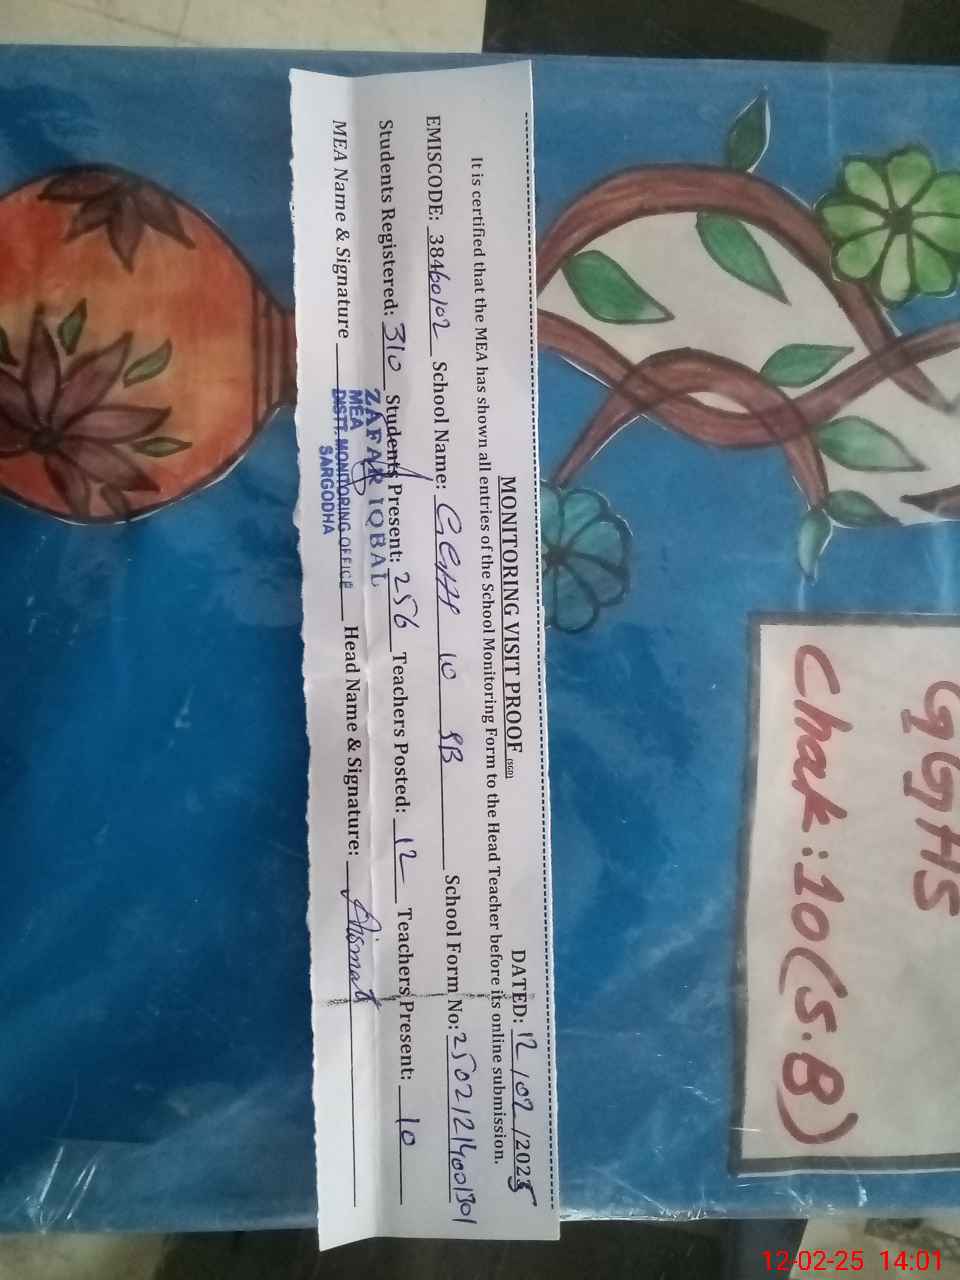 MONITORING VISIT PROOF (SGD) DATED: 12/02/2025
It is certified that the MEA has shown all entries of the School Monitoring Form to the Head Teacher before its online submission.
EMISCODE: 38460102 School Name: GGHS 10 SB School Form No: 25021214001301
Students Registered: 310 Students Present: 256 Teachers Posted: 12 Teachers Present: 10
MEA Name & Signature Head Name & Signature:
ZAFAR IQBAL
MEA
DISTT. MONITORING OFFICE
SARGODHA
GGHS
Chak:10(S.B)
12-02-25 14:01